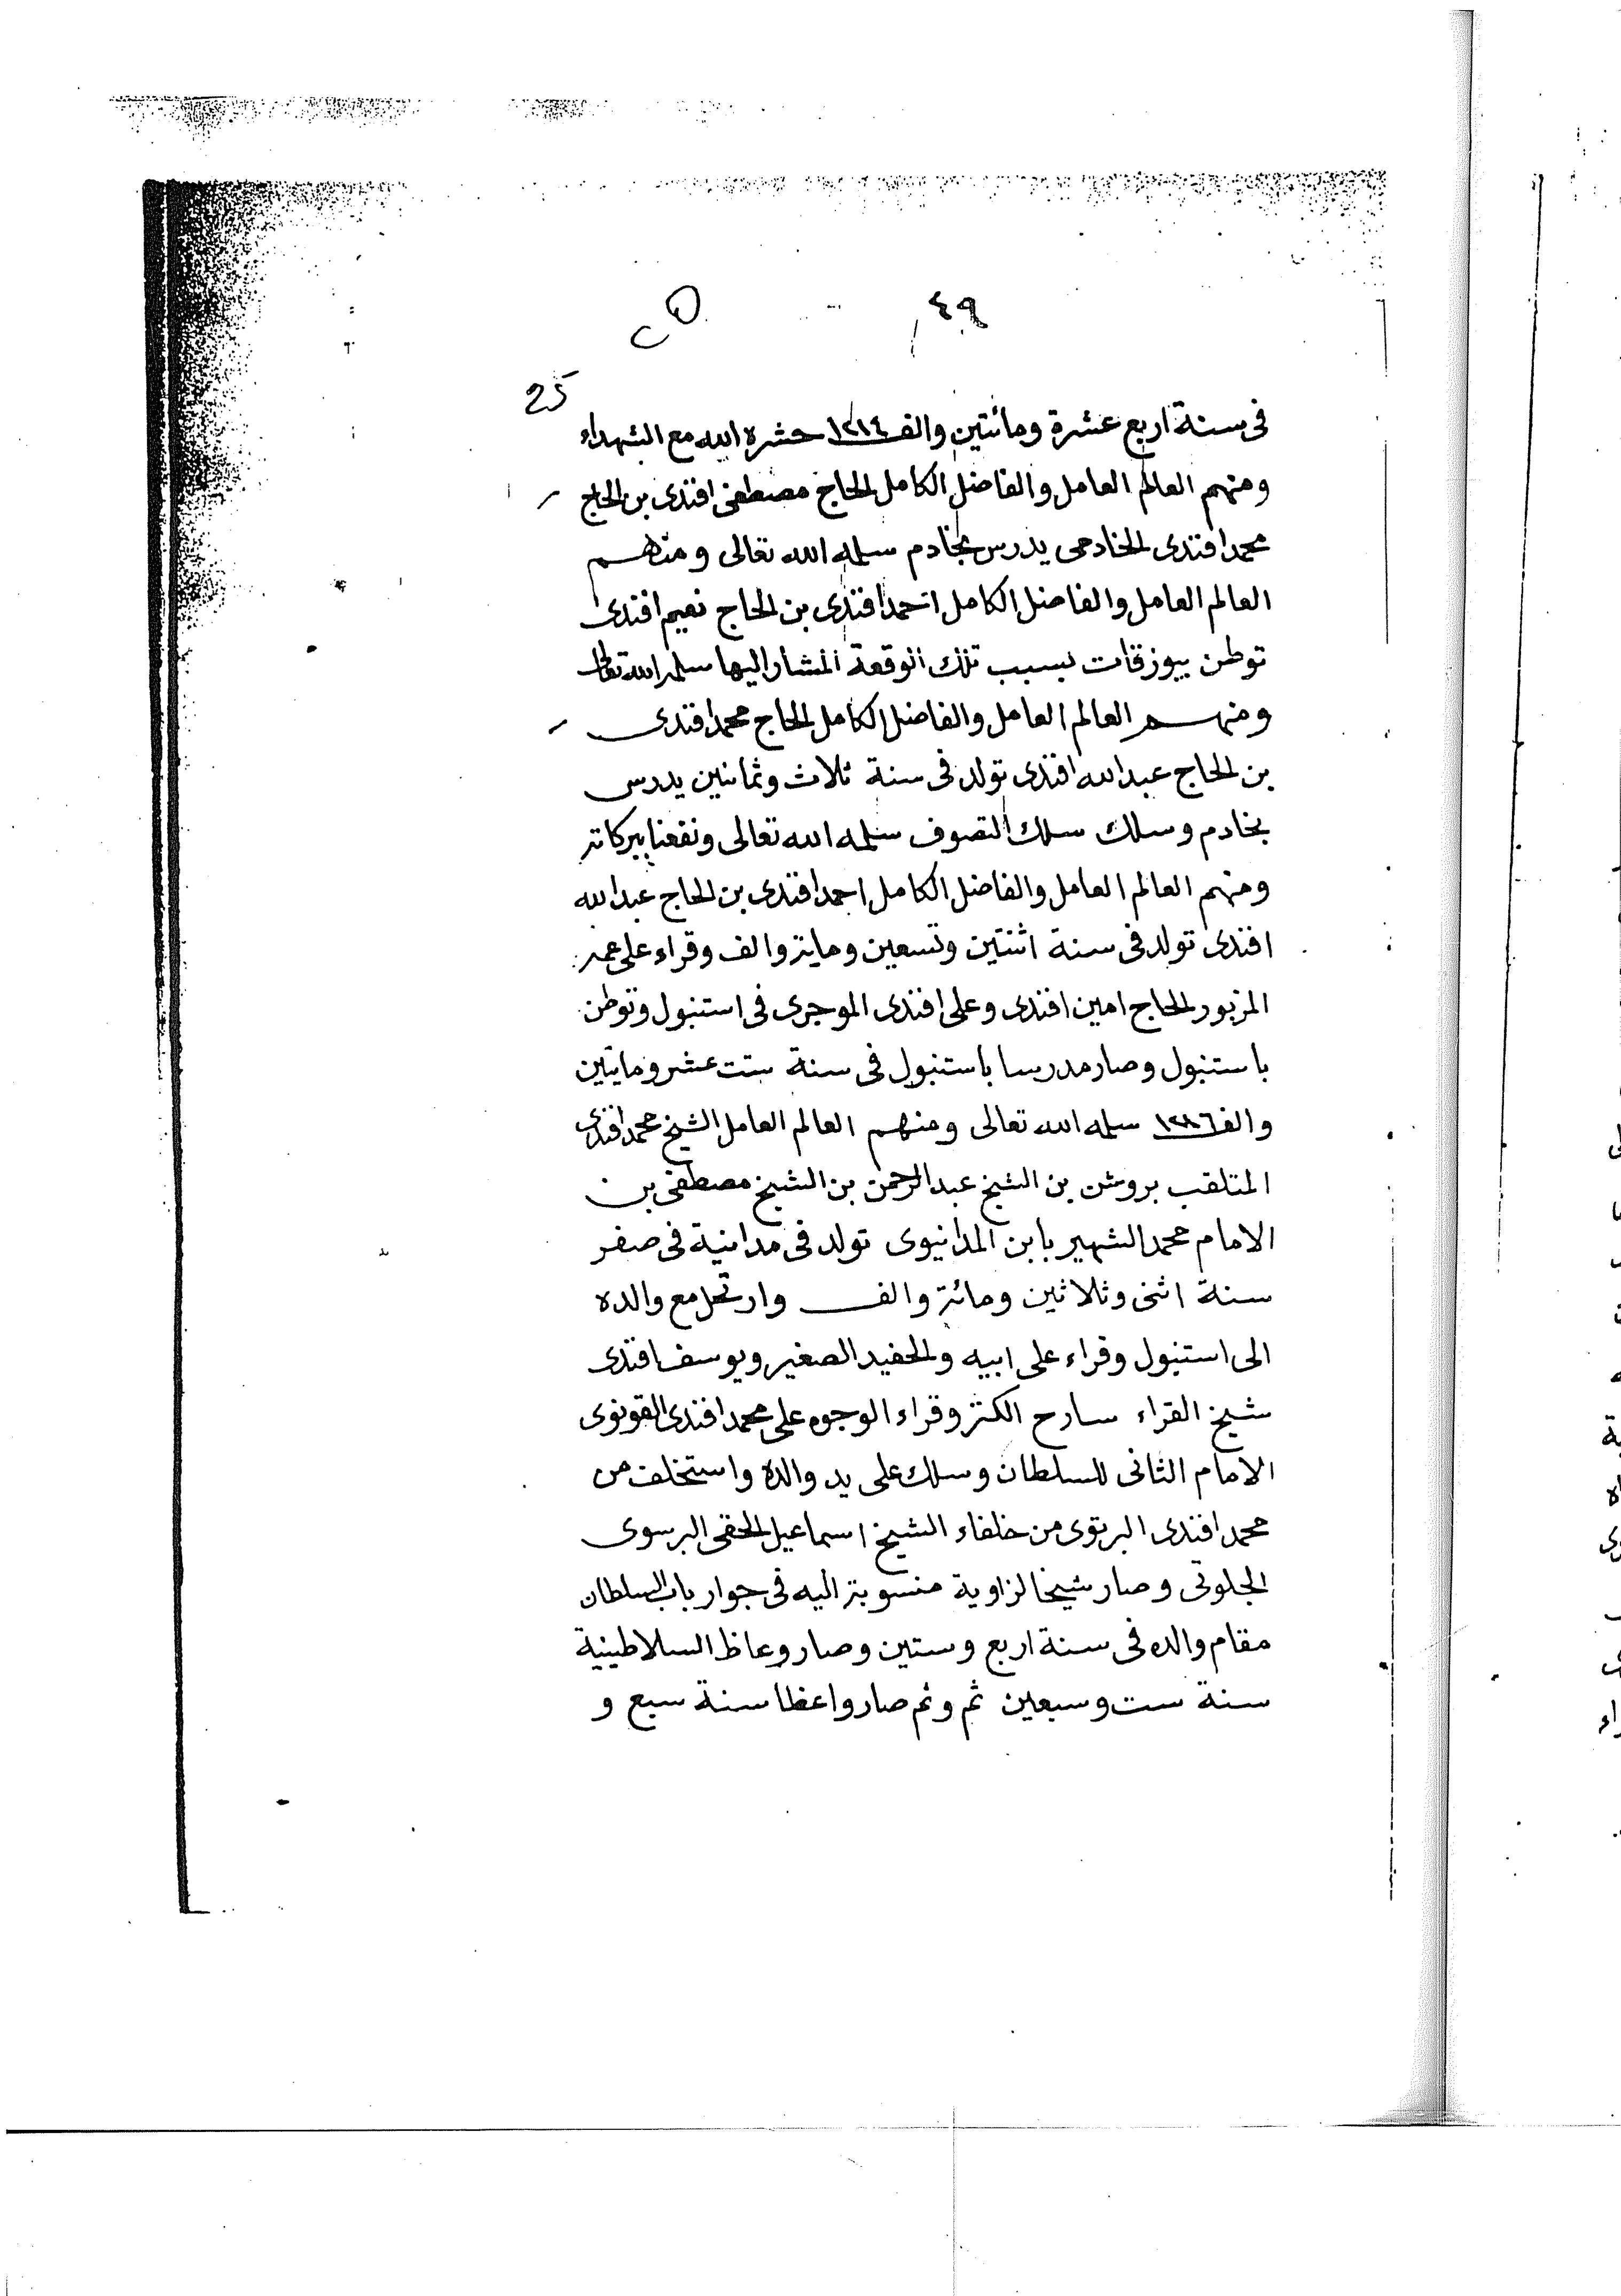 ٤٩
٢٥
25
فى سنة اربع عشرة ومائتين والف ١٢١٤ حشره الله مع الشهداء
ومنهم العالم العامل والفاضل الكامل الحاج مصطفى افندى بن الحاج
محمد افندى الخادمى يدرس بخادم سلمه الله تعالى ومنهم
العالم العامل والفاضل الكامل احمد افندى بن الحاج نعيم افندى
توطن ببوزقات بسبب تلك الوقعة المشار اليها سلمه الله تعالى
ومنهم العالم العامل والفاضل الكامل الحاج محمد افندى
بن الحاج عبد الله افندى تولد فى سنة ثلاث وثمانين يدرس
بخادم وسلك سلك التصوف سلمه الله تعالى ونفعنا ببركاته
ومنهم العالم العامل والفاضل الكامل احمد افندى بن الحاج عبد الله
افندى تولد فى سنة اثنتين وتسعين وماية والف وقراء على عمه
المزبور الحاج امين افندى وعلى افندى الموجرى فى استنبول وتوطن
باستنبول وصار مدرسا باستنبول فى سنة ستت عشر ومايتين
والف سلمه الله تعالى ومنهم العالم العامل الشيخ محمد افندى
المتلقب بروشن بن الشيخ عبد الرحمن بن الشيخ مصطفى بن
الامام محمد الشهير بابن المدانيوى تولد فى مدانية فى صفر
سنة اثنى وثلاثين ومائة والف وارتحل مع والده
الى استنبول وقراء على ابيه والحفيد الصغير ويوسف افندى
شيخ القراء سارح الكنز وقراء الوجوه على محمد افندى القونوى
الامام الثانى للسلطان وسلك على يد والده واستخلف من
محمد افندى البرتوى من خلفاء الشيخ اسماعيل الحقى البرسوى
الجلوتى وصار شيخا لزاوية منسوبة اليه فى جوار باب السلطان
مقام والده فى سنة اربع وستين وصار وعاظ السلاطينية
سنة ست وسبعين ثم وثم صار واعظا سنة سبع و